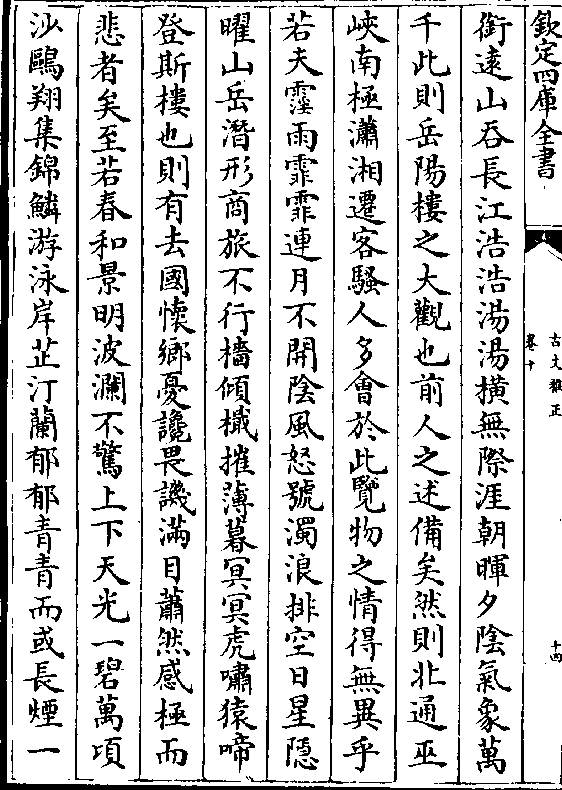 欽定四庫全書
古文雅正
卷十
十四
銜逺山吞長江浩浩湯湯橫無際涯朝暉夕陰氣象萬
千此則岳陽樓之大觀也前人之述備矣然則北通巫
峽南極瀟湘遷客騷人多㑹於此覽物之情得無異乎
若夫霪雨霏霏連月不開陰風怒號濁浪排空日星隱
曜山岳潛形商旅不行檣傾檝摧薄暮冥冥虎嘯猿啼
登斯樓也則有去國懐鄉憂讒畏譏滿目蕭然感極而
悲者矣至若春和景明波瀾不驚上下天光一碧萬頃
沙鷗翔集錦鱗游泳岸芷汀蘭郁郁青青而或長煙一